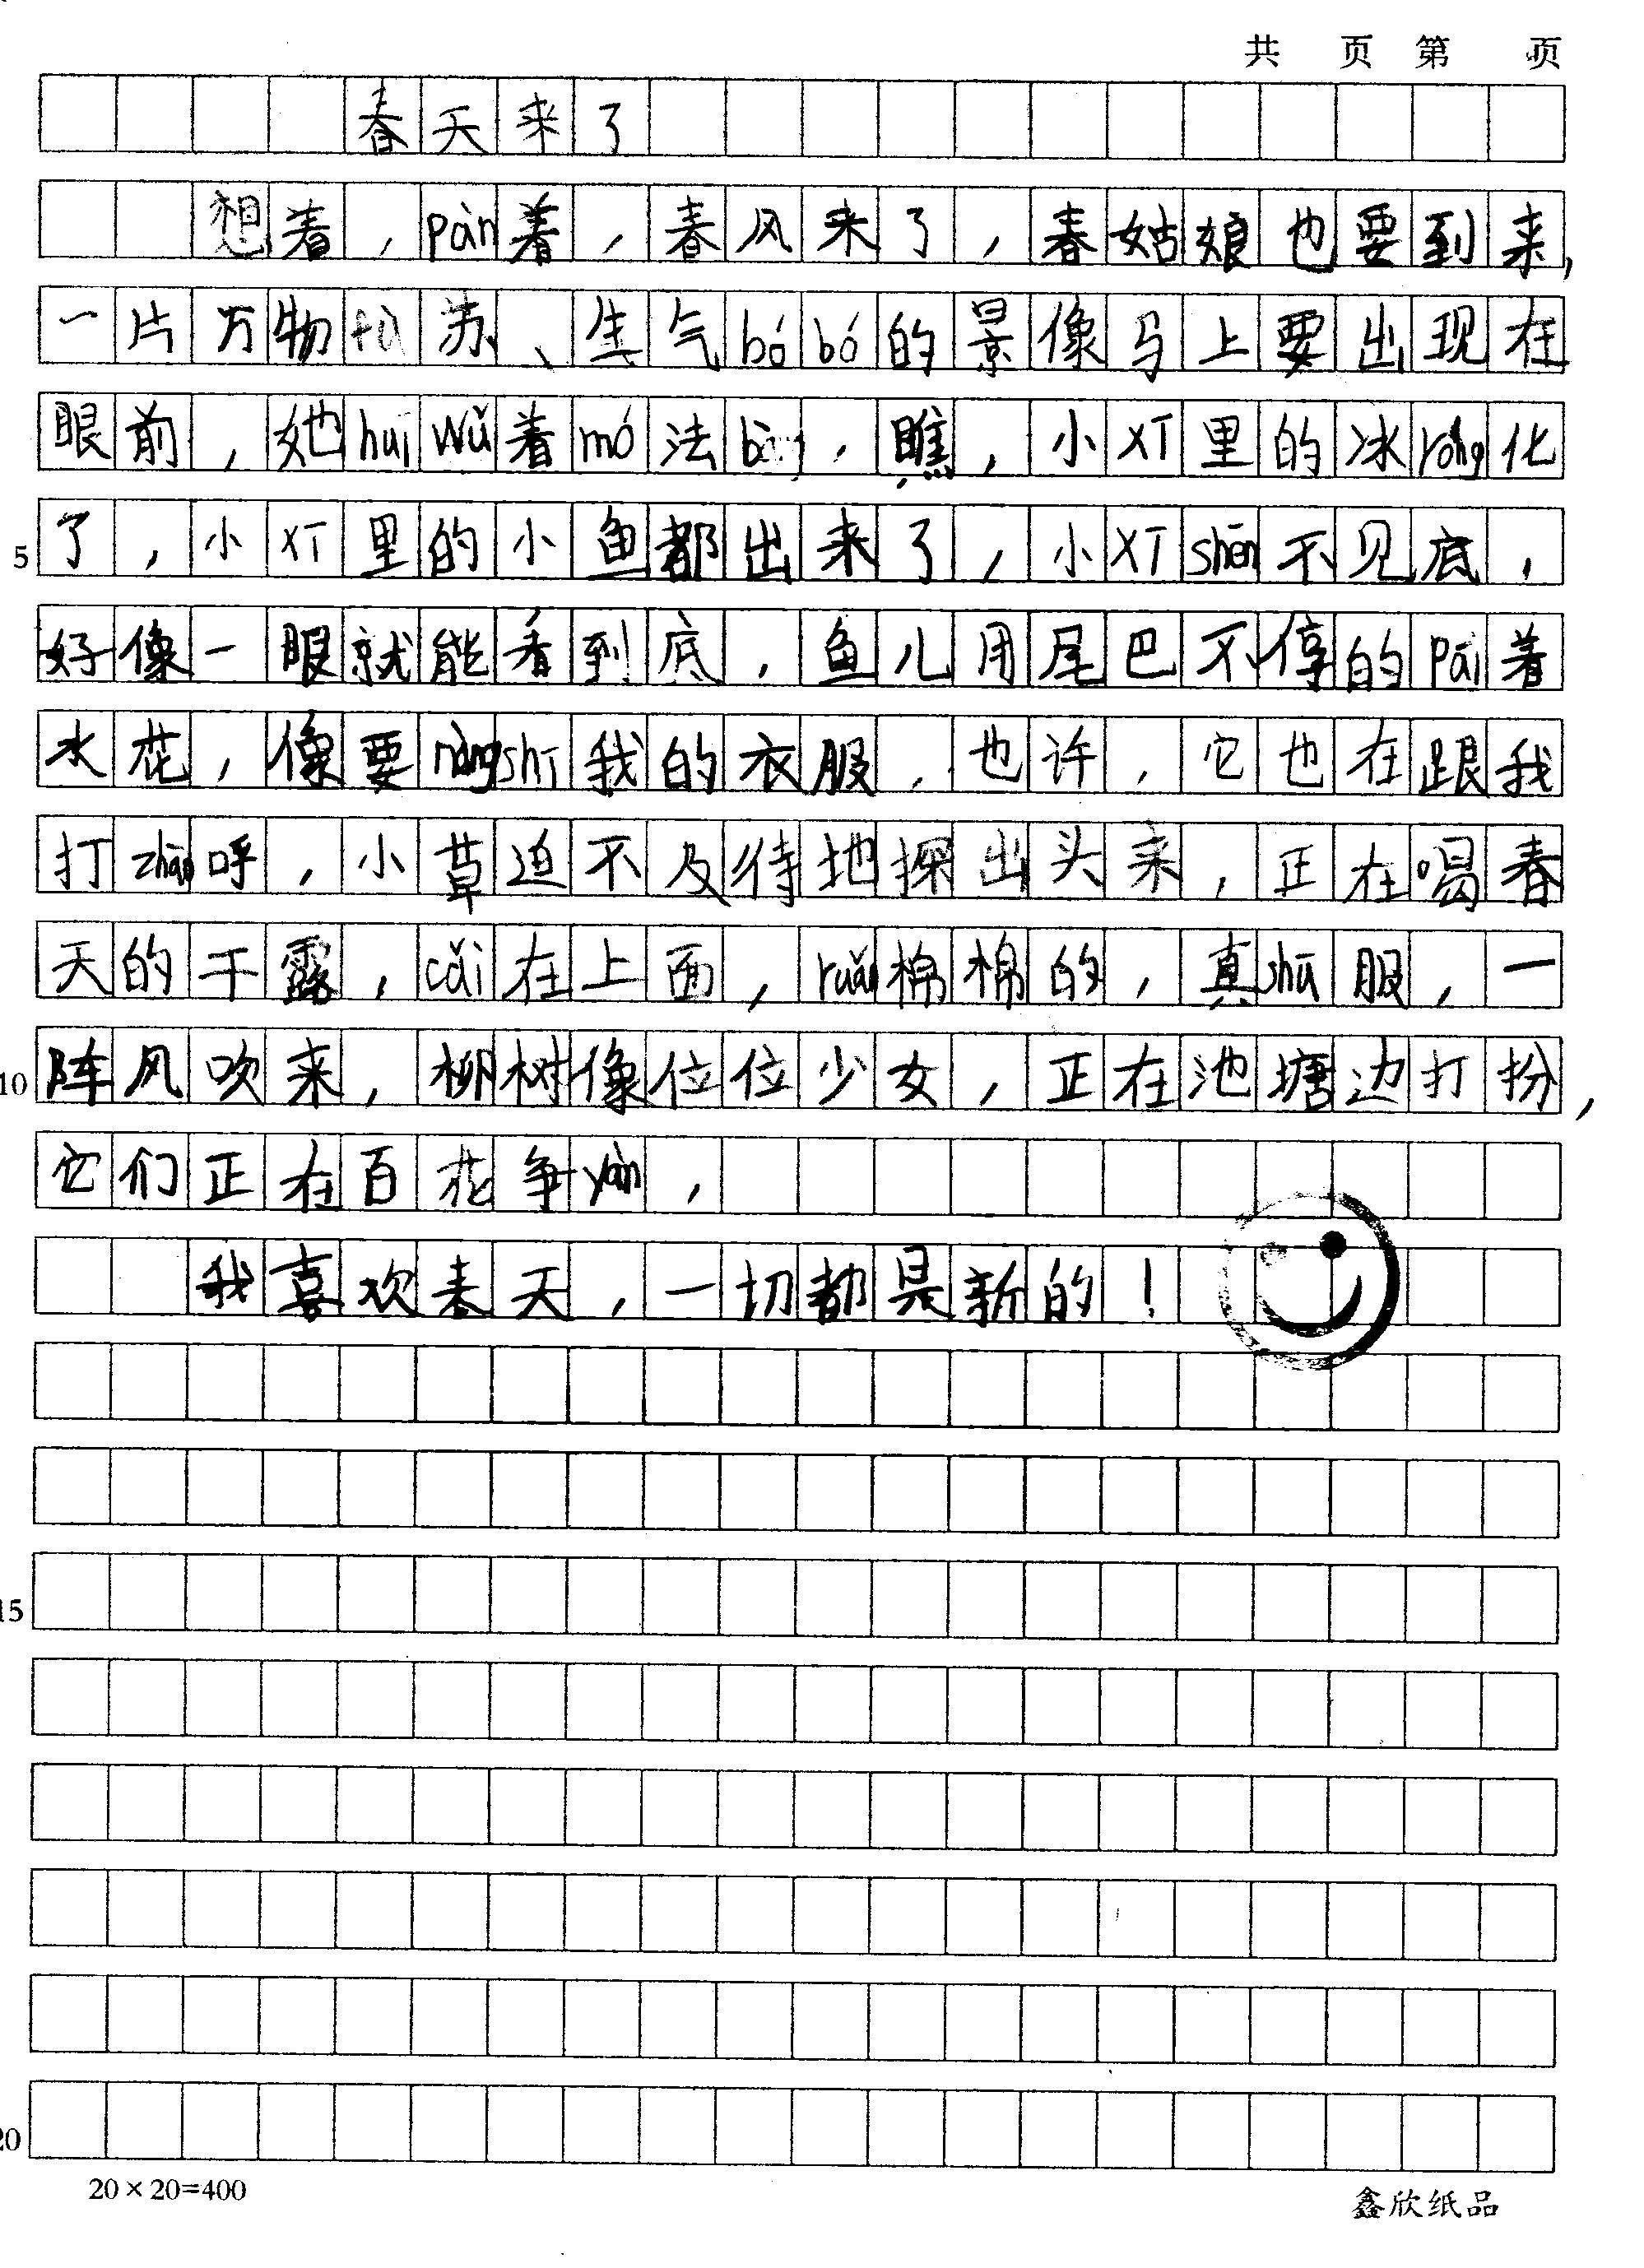 共 页 第 页
春天来了
想着，pàn着，春风来了，春姑娘也要到来，
一片万物fù苏、生气bóbó的景像马上要出现在
眼前，她huīwǔ着mó法bàng，瞧，小xī里的冰róng化
5 了，小xī里的小鱼都出来了，小xīshēn不见底，
好像一眼就能看到底，鱼儿用尾巴不停的pāi着
水花，像要nòngshī我的衣服，也许，它也在跟我
打zhāo呼，小草迫不及待地探出头来，正在喝春
天的干露，cǎi在上面，ruǎn棉棉的，真shū服，一
10 阵风吹来，柳树像位位少女，正在池塘边打扮，
它们正在百花争yàn，
我喜欢春天，一切都是新的！
15
20
20×20=400 鑫欣纸品